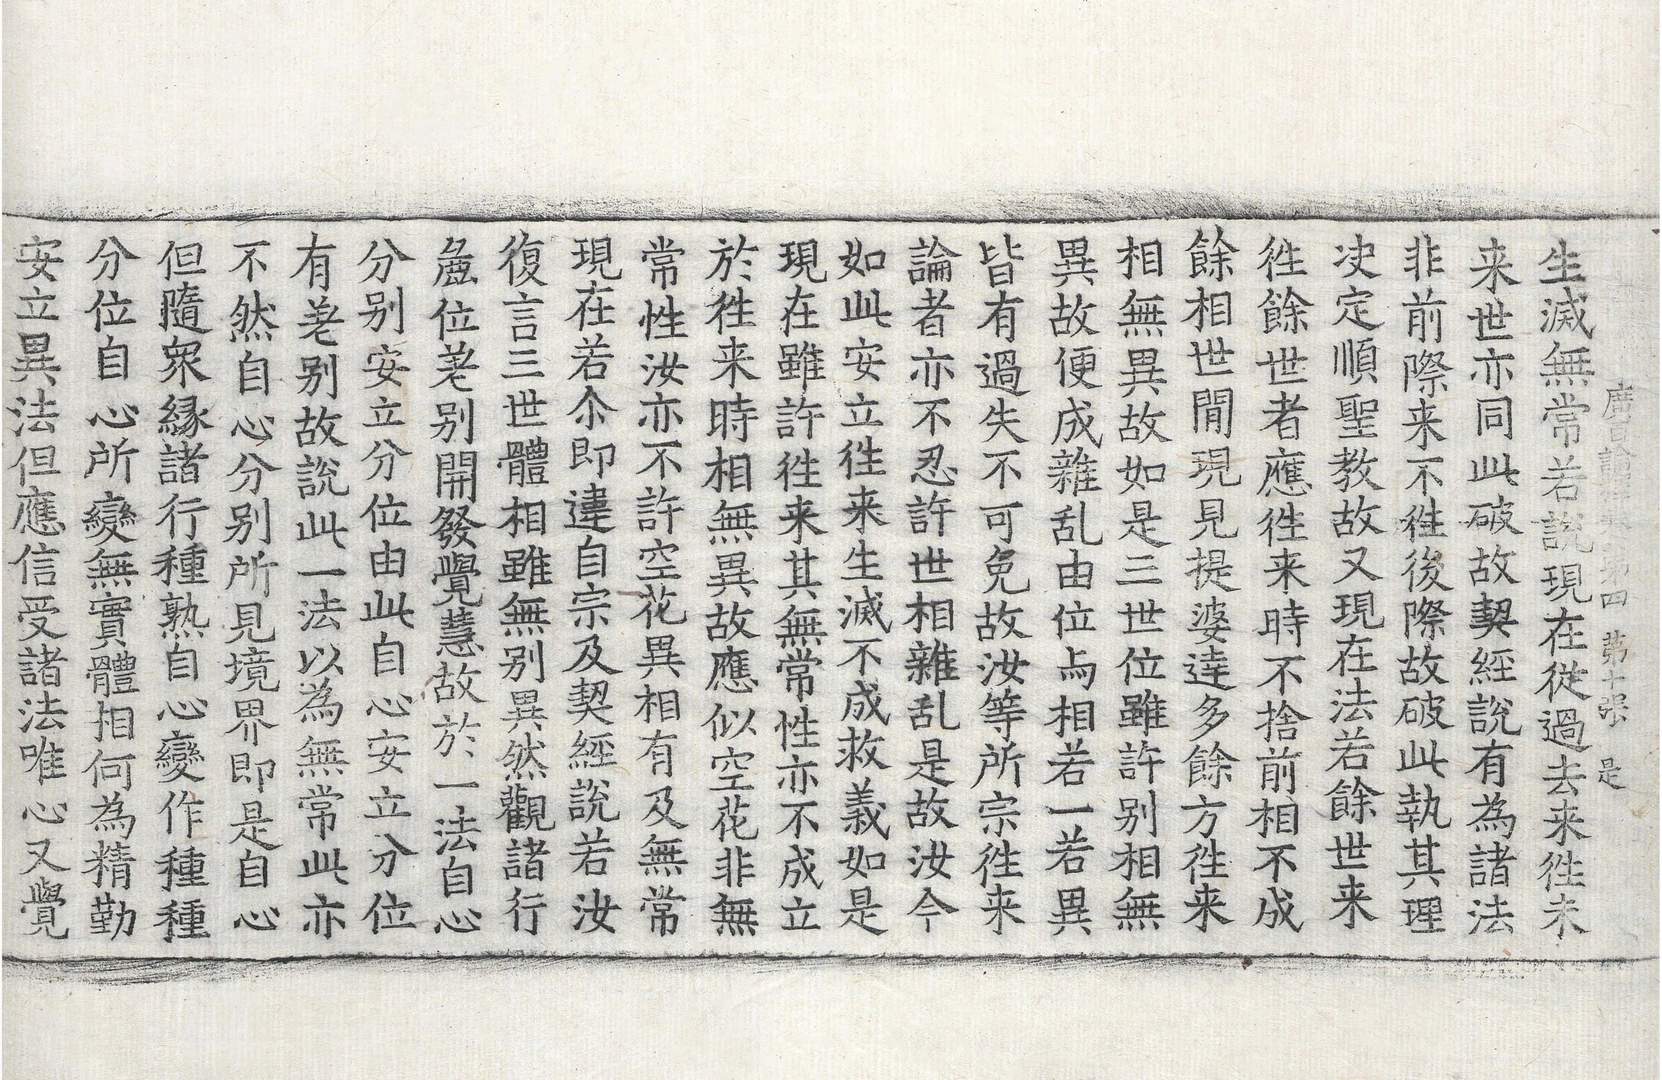 廣百論釋論第四 第十張 是
生滅無常若說現在從過去来徃未
来世亦同此破故契經說有為諸法
非前際来不徃後際故破此執其理
决定順聖教故又現在法若餘世来
徃餘世者應徃来時不捨前相不成
餘相世間現見提婆達多餘方徃来
相無異故如是三世位雖許别相無
異故便成雜乱由位与相若一若異
皆有過失不可免故汝等所宗徃来
論者亦不忍許世相雜乱是故汝今
如此安立徃来生滅不成救義如是
現在雖許徃来其無常性亦不成立
於徃来時相無異故應似空花非無
常性汝亦不許空花異相有及無常
現在若尒即違自宗及契經說若汝
復言三世體相雖無别異然觀諸行
麁位差别開發覺慧故於一法自心
分别安立分位由此自心安立分位
有差别故說此一法以為無常此亦
不然自心分别所見境界即是自心
但隨衆緣諸行種熟自心變作種種
分位自心所變無實體相何為精勤
安立異法但應信受諸法唯心又覺